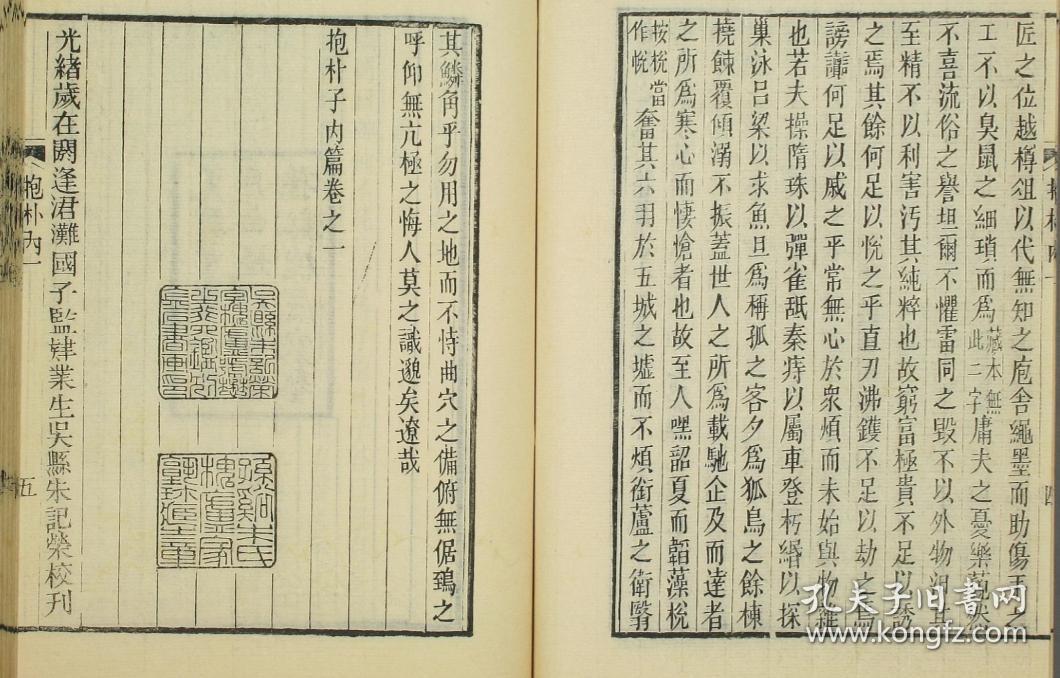 匠之位越樽俎以代無知之庖舍繩墨而助傷手之
工不以臭鼠之細瑣而爲藏本無此二字庸夫之憂樂藐然
不喜流俗之譽坦爾不懼雷同之毀不以外物汩其
至精不以利害汚其純粹也故窮富極貴不足以誘
之焉其餘何足以悅之乎直刃沸鑊不足以劫之焉
謗讟何足以戚之乎常無心於衆煩而未始與物雜
也若夫操隋珠以彈雀舐秦痔以屬車登朽緡以探
巢泳呂梁以求魚旦爲稱孤之客夕爲狐鳥之餘棟
撓餗覆傾溺不振蓋世人之所爲載馳企及而達者
之所爲寒心而悽愴者也故至人嘿韶夏而韜藻梲
按梲當作帨奮其六羽於五城之墟而不煩銜蘆之衛翳
抱朴內一
四
其鱗角乎勿用之地而不恃曲穴之備俯無倨鵄之
呼仰無亢極之悔人莫之識邈矣遼哉
抱朴子內篇卷之一
孫谿朱氏槐廬家塾珍造之章
光緒歲在閼逢涒灘國子監肄業生吳縣朱記榮校刊
抱朴內一
五
孔夫子旧书网
www.kongfz.com